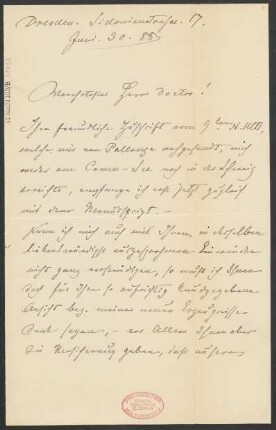 Dresden. Sidonienstraße. 17.
Juni. 30. 88
Hochverehrter Herr Doctor!
Ihre freundliche Zuschrift vom 9ten
welche mir von Pallanza nachgesandt, mich
weder am Comer-See noch in der Schweiz
erreichte, empfange ich erst jetzt zugleich
mit dem Manuscript. —
Kann ich mich auch mit Ihren, in derselben
liebenswürdig ausgesprochenen Einwänden
nicht ganz verständigen, so muß ich Ihnen
doch für Ihre so aufrichtig kundgegebene
Ansicht bez. meiner neuen Erzeugnisse
Dank sagen, – vor Allem Ihnen aber
die Versicherung geben, daß unsere